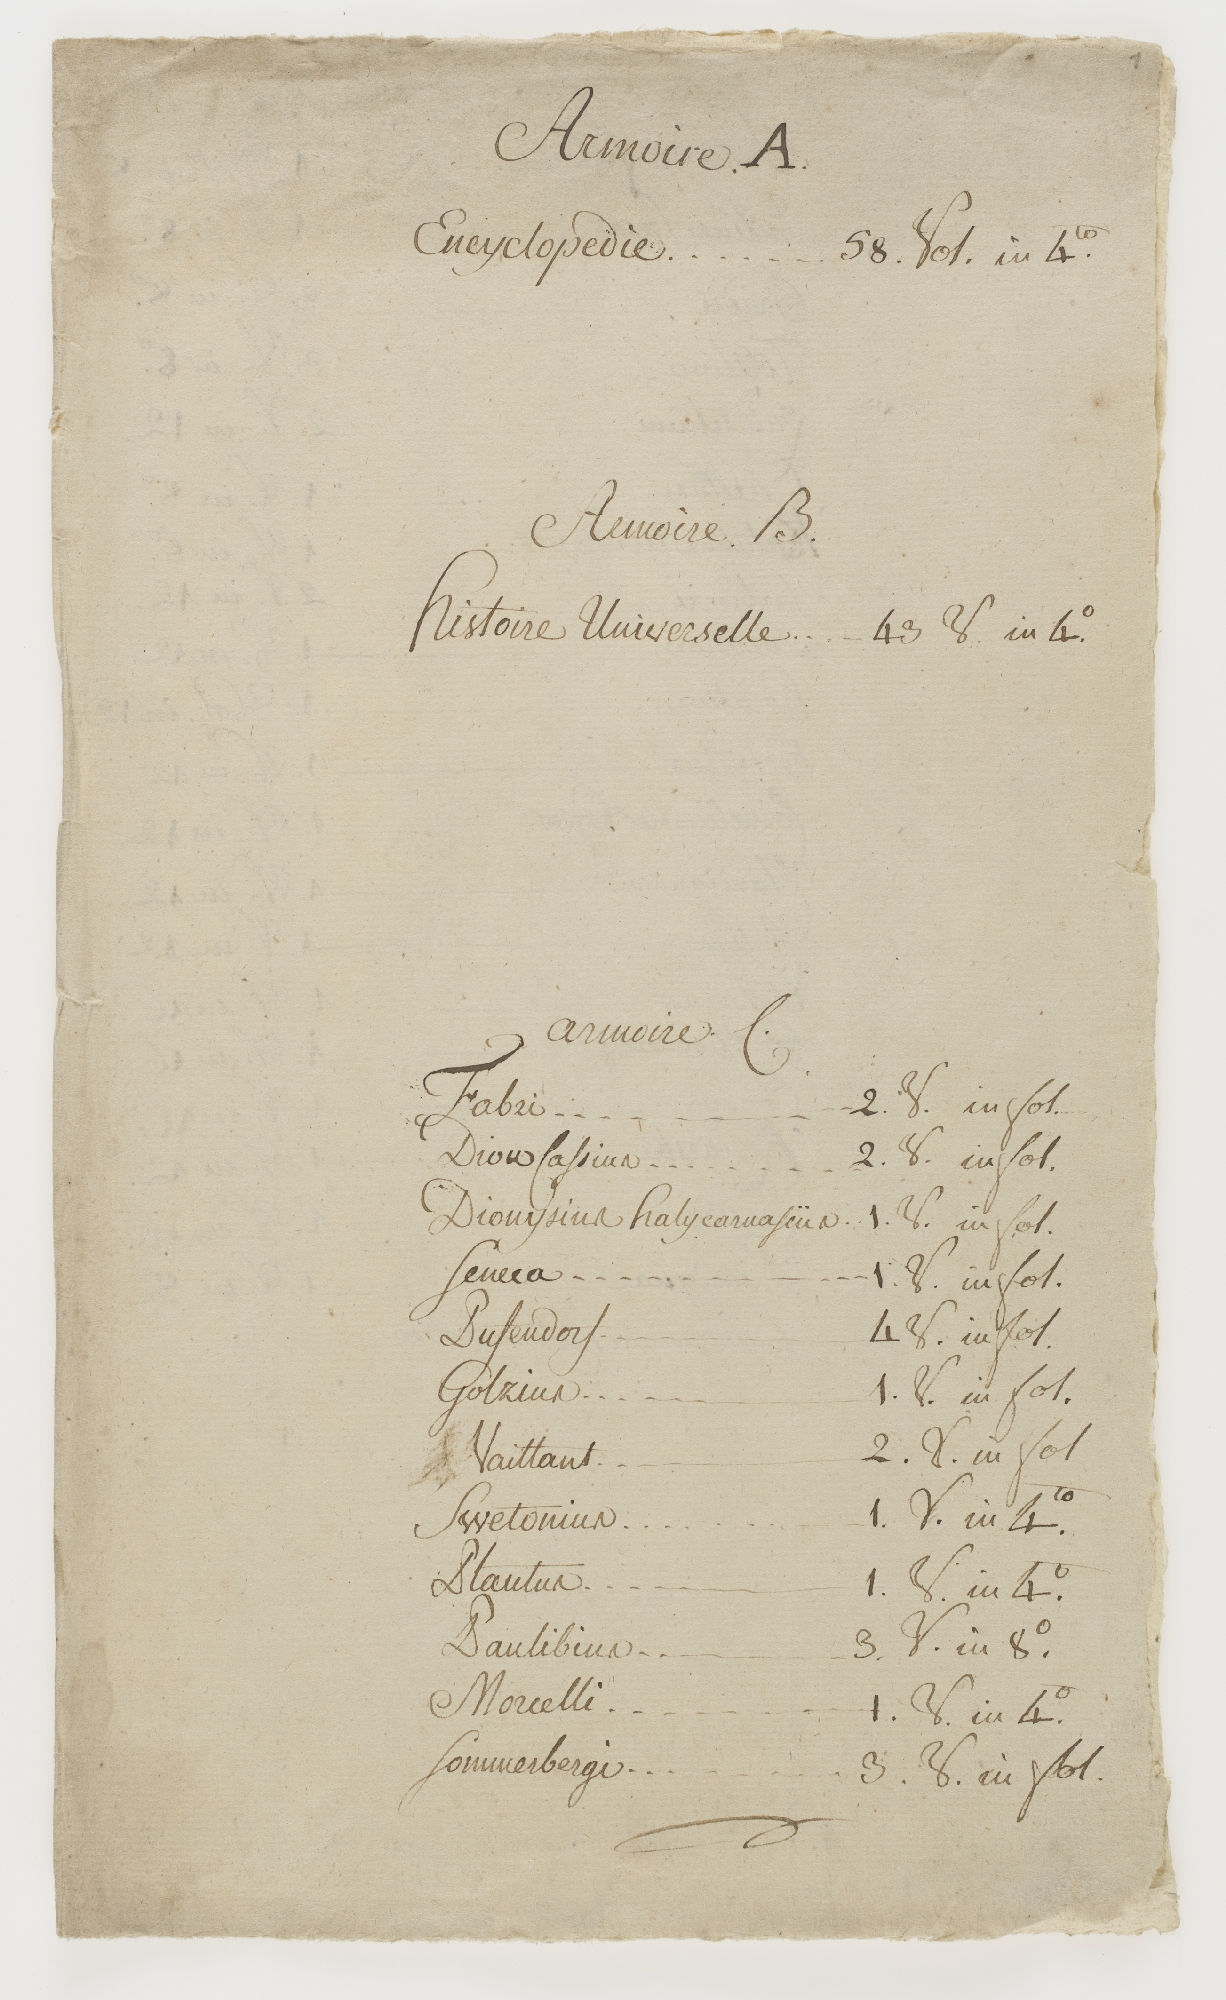 1
Armoire. A.
Encyclopedie. . . . . . . 58. Vol. in 4to.
Armoire. B.
histoire Universelle. . . . 43 V. in 4o.
armoire. C.
Fabri . . . . . . 2. V. in fol.
Dion Cassius . . . . . . . 2. V. in fol.
Dionysius halycarnasiius. 1. V. in fol.
Seneca . . . . . . . 1. V. in fol.
Pufendorf. 4 V. in fol.
Golzius. . . . . 1. V. in fol.
Vaillant. . . 2. V. in fol
Swetonius. . . . . . 1. V. in 4to.
Plautus. . . . 1. V. in 4o.
Paulibius . . . 3. V. in 8o.
Morcelli. . . . . . . 1. V. in 4o.
Sommerbergi . . . . . . . 3. V. in fol.